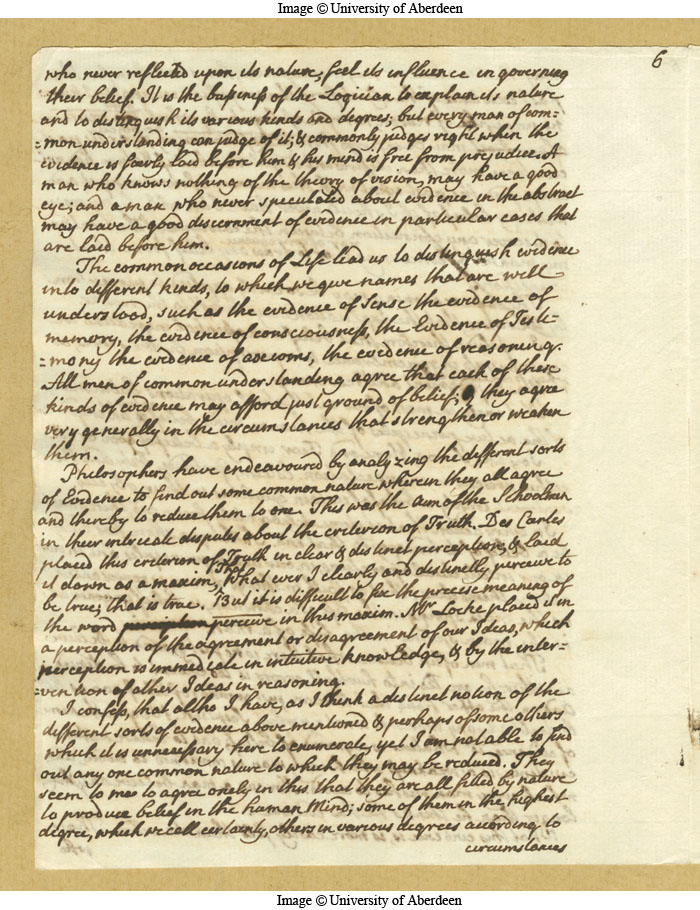 Image © University of Aberdeen
6
who never reflected upon its nature, feel its influence in governing
their belief. It is the bussiness of the Logician to explain its nature
and to distinguish its various kinds and degrees; but every man of com=
=mon understanding can judge of it; & commonly judges right when the
evidence is fairly laid before him & his mind is free from prejudice. A
man who knows nothing of the theory of vision, may have a good
eye; and a man who never speculated about evidence in the abstract
may have a good discernment of evidence in particular cases that
are laid before him.
The common occasions of Life lead us to distinguish evidence
into different kinds, to which we give names that are well
understood, such as the evidence of Sense the evidence of
memory, the evidence of consciousness, the Evidence of Testi=
=mony the evidence of axioms, the evidence of reasoning.
All men of common understanding agree that each of these
kinds of evidence may afford just ground of belief; & they agree
very generally in the circumstances that strengthen or weaken
them.
Philosophers have endeavoured by analyzing the different sorts
of Evidence to find out some common nature wherein they all agree
and thereby to reduce them to one. This was the aim of the Schoolmen
in their intricate disputes about the criterion of Truth. Des Cartes
placed this criterion of Truth in clear & distinct perception, & laid
it down as a maxim, That what ever I clearly and distinctly perceive to
be true, that is true. But it is difficult to fix the precise meaning of
the word perception perceive in this maxim. Mr Locke placed it in
a perception of the agreement or disagreement of our Ideas, which
perception is immediate in intuitive knowledge, & by the inter=
=vention of other Ideas in reasoning.
I confess, that altho I have, as I think a distinct notion of the
different sorts of evidence above mentioned & perhaps of some others
which it is unnecessary here to enumerate, yet I am not able to find
out any one common nature to which they may be reduced. They
seem to me to agree onely in this that they are all fitted by nature
to produce belief in the human Mind; some of them in the highest
degree, which we call certainty, others in various degrees according to
circumstances
Image © University of Aberdeen